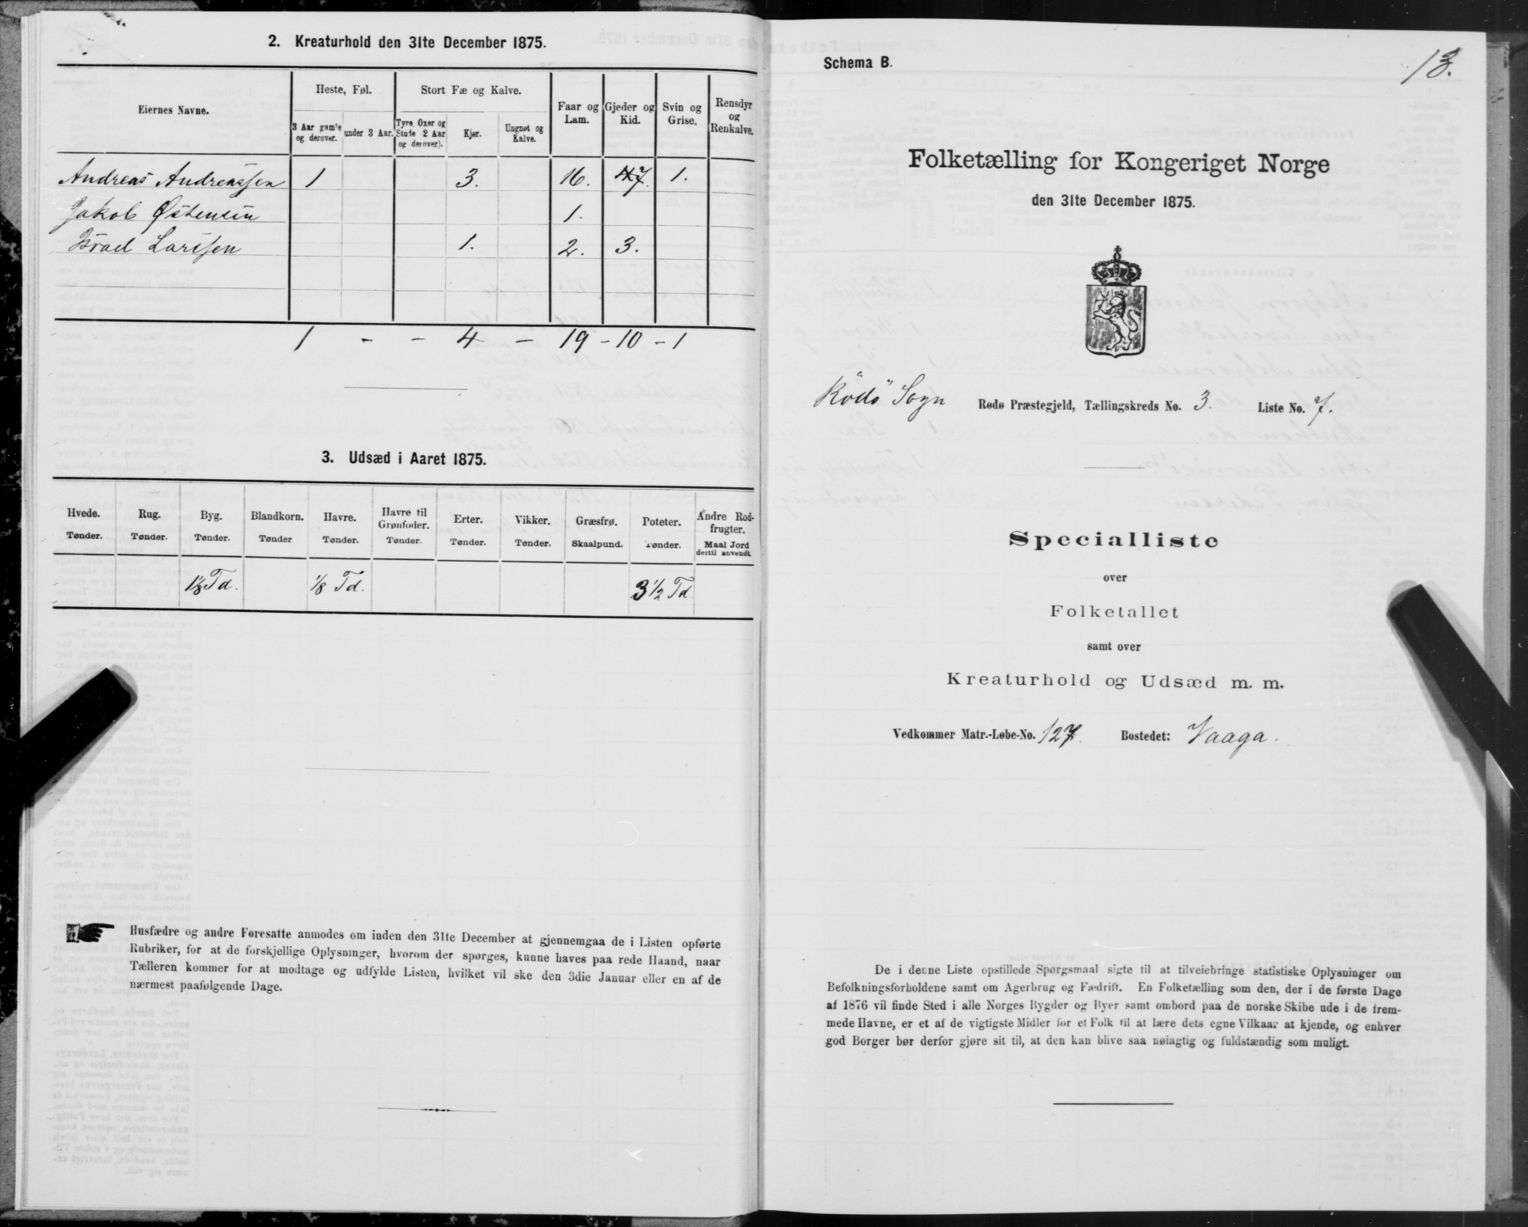 2. Kreaturhold den 31te December 1875.
Eiernes Navne. Heste, Føl. Stort Fæ og Kalve. Faar og Lam. Gjeder og Kid. Svin og Grise. Rensdyr og Renkalve.
3 Aar gam'e og derover. under 3 Aar. Tyre, Oxer og Stude 2 Aar og derover). Kjør. Ungnøt og Kalve.
Andreas Andreassen 1 3. 16. 7. 1.
Jakob Østensen 1.
Israel Larssen 1. 2. 3.
1 - - 4 - 19 - 10 - 1
3. Udsæd i Aaret 1875.
Hvede. Rug. Byg. Blandkorn. Havre. Havre til Grønfoder. Erter. Vikker. Græsfrø. Poteter. Andre Rodfrugter.
Tønder. Tønder. Tønder. Tønder Tønder. Tønder. Tønder. Tønder. Skaalpund. Tønder. Maal Jord dertil anvendt.
Td. 1/8 Td. 3 1/2 Td.
Husfædre og andre Foresatte anmodes om inden den 31te December at gjennemgaa de i Listen opførte
Rubriker, for at de forskjellige Oplysninger, hvorom der spørges, kunne haves paa rede Haand, naar
Tælleren kommer for at modtage og udfylde Listen, hvilket vil ske den 3die Januar eller en af de
nærmest paafølgende Dage.
Schema B.
13.
Folketælling for Kongeriget Norge
den 31te December 1875.
Rödö Sogn Rødø Præstegjeld, Tællingskreds No. 3. Liste No. 7.
Specialliste
over
Folketallet
samt over
Kreaturhold og Udsæd m. m.
Vedkommer Matr.-Løbe-No. 127. Bostedet: Vaaga.
De i denne Liste opstillede Spørgsmaal sigte til at tilveiebringe statistiske Oplysninger om
Befolkningsforholdene samt om Agerbrug og Fædrift. En Folketælling som den, der i de første Dage
af 1876 vil finde Sted i alle Norges Bygder og Byer samt ombord paa de norske Skibe ude i de frem-
mede Havne, er et af de vigtigste Midler for et Folk til at lære dets egne Vilkaar at kjende, og enhver
god Borger bør derfor gjøre sit til, at den kan blive saa nøiagtig og fuldstændig som muligt.